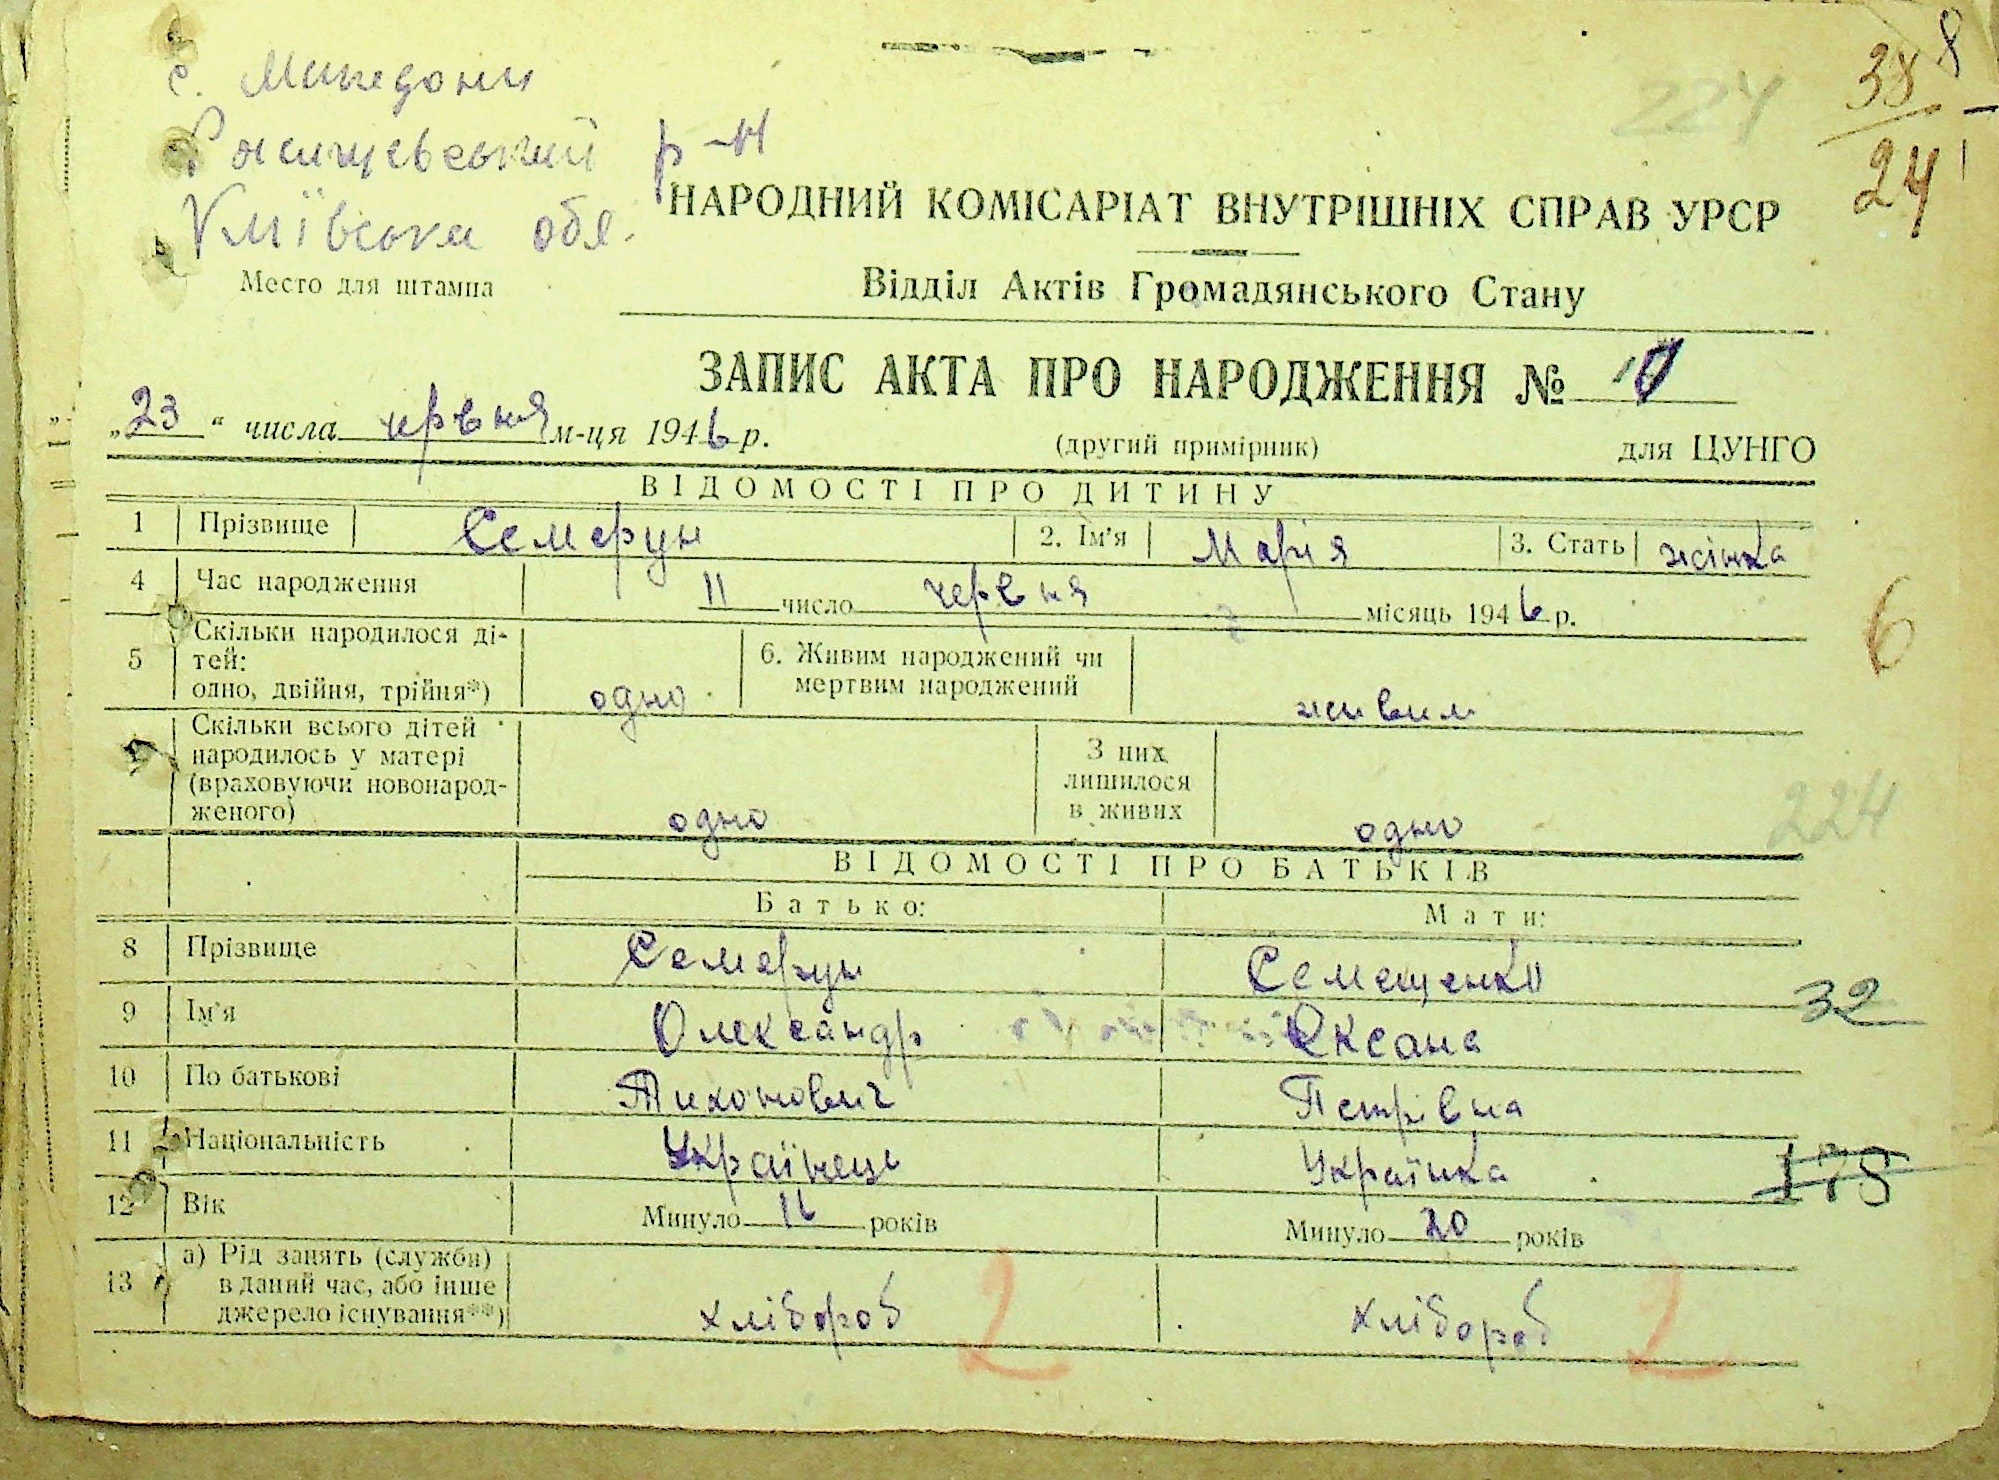 с. Македони
Рокищевський р-н
Київська обл.
Место для штампа
224
38 8
24 1
НАРОДНИЙ КОМІСАРІАТ ВНУТРІШНІХ СПРАВ УРСР
Відділ Актів Громадянського Стану
ЗАПИС АКТА ПРО НАРОДЖЕННЯ № 10
„23“ числа червня м-ця 1946 р. (другий примірник) для ЦУНГО
ВІДОМОСТІ ПРО ДИТИНУ
1 Прізвище Семерун 2. Ім'я Марія 3. Стать жінка
4 Час народження 11 число червня місяць 1946 р.
6
5 Скільки народилося ді-
тей:
одно, двійня, трійня*) одно 6. Живим народжений чи
мертвим народжений живим
Скільки всього дітей
народилось у матері
(враховуючи новонарод-
женого) одно З них
лишилося
в живих одно
224
ВІДОМОСТІ ПРО БАТЬКІВ
Батько: Мати:
8 Прізвище Семерун Семещенко
32
9 Ім'я Олександр Оксана
10 По батькові Тихонович Петрівна
11 Національність Українець Українка
178
12 Вік Минуло 16 років Минуло 20 років
13 а) Рід занять (служби)
в даний час, або інше
джерело існування**) хлібороб хлібороб
2 2